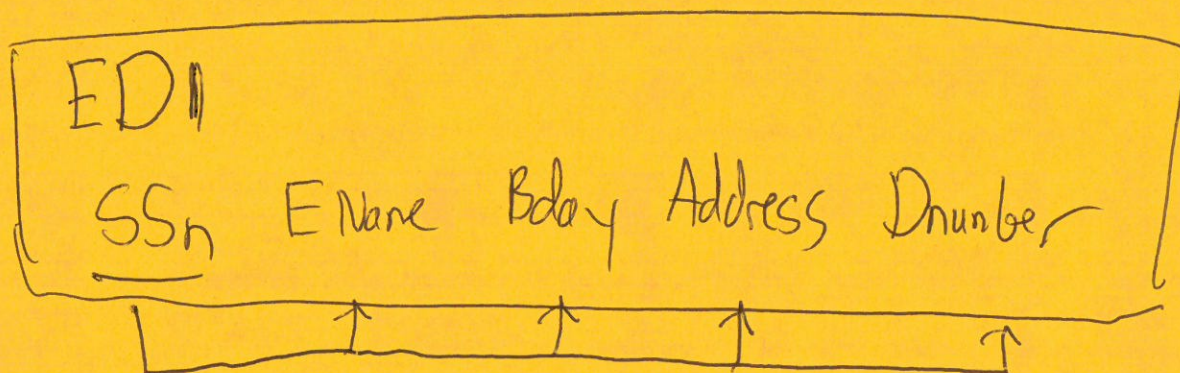 ED1
SSn EName Bday Address Dnumber